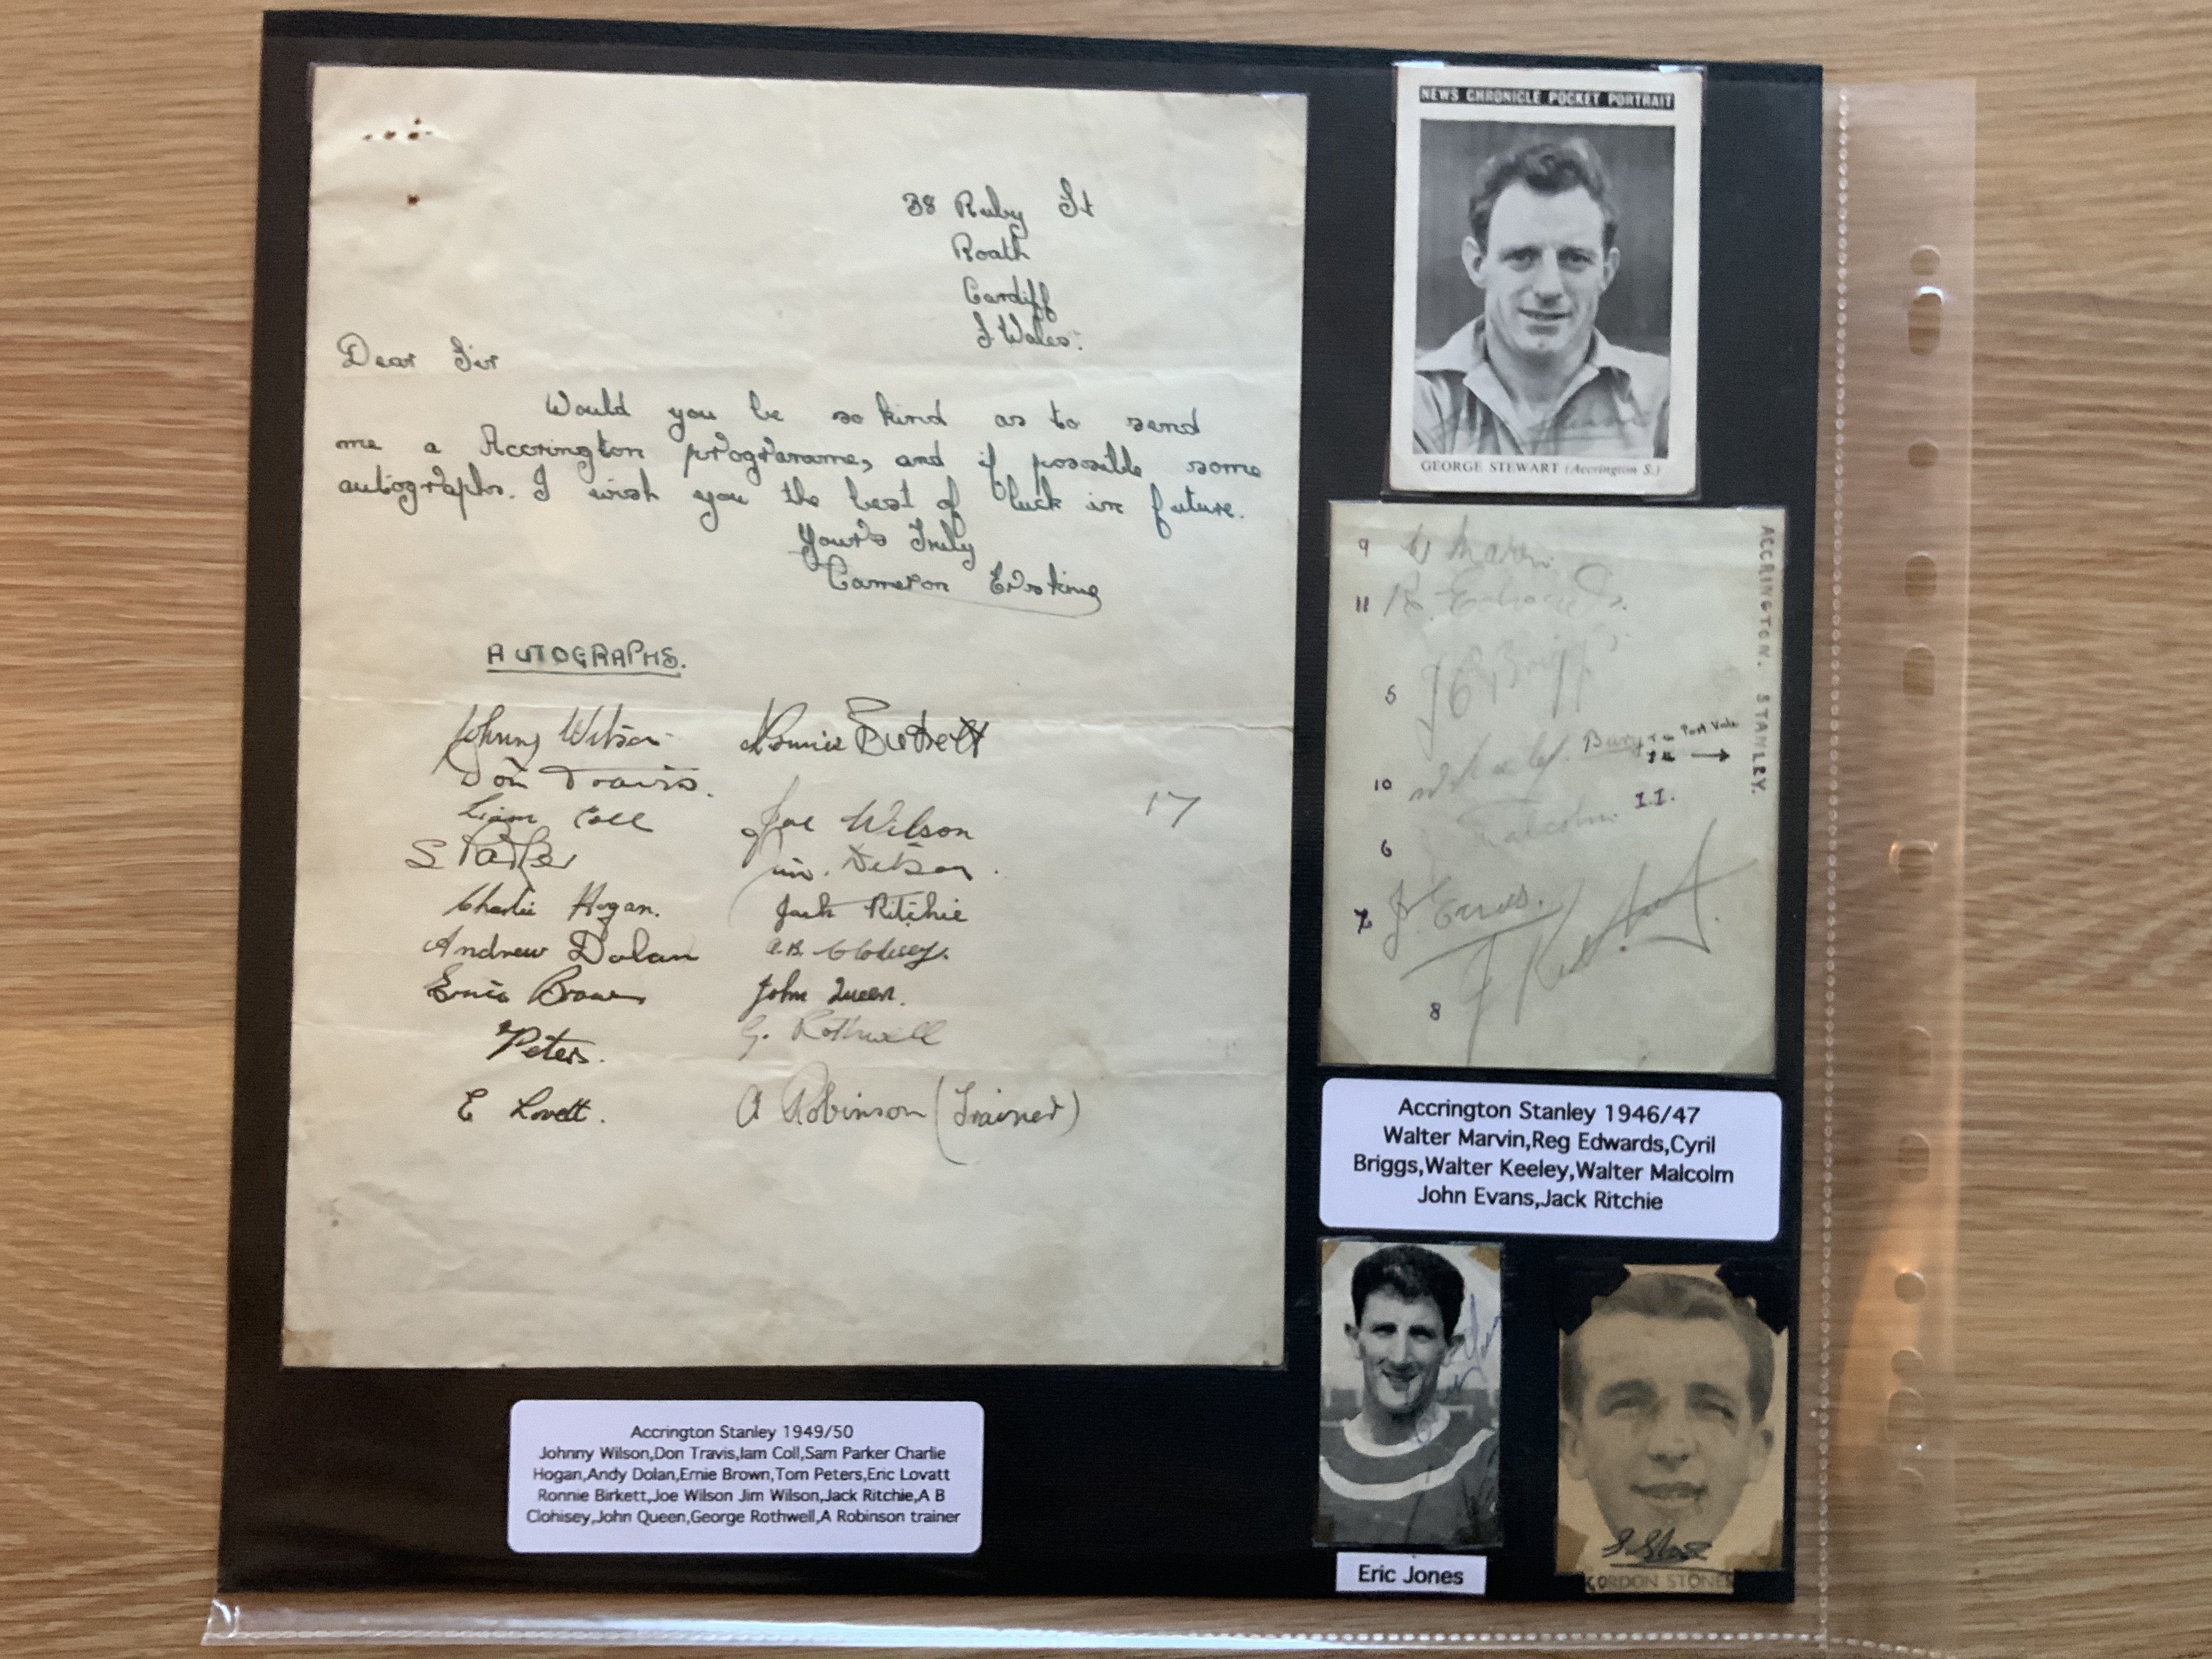 38 Ruby St
Roath
Cardiff
S. Wales.
Dear Sir
Would you be so kind as to send
me a Accrington programme, and if possible some
autographs. I wish you the best of luck in future.
Yours Truly
Cameron Erskine
AUTOGRAPHS.
Johnny Wilson
Don Travis.
Liam Coll
S Parker
Charlie Hogan.
Andrew Dolan
Ernie Brown
Peters.
E Lovett.
Ronnie Birkett
Joe Wilson
Jim. Wilson.
Jack Ritchie
A.B. Clohisey.
John Queen.
G. Rothwell
A Robinson (Trainer)
17
Accrington Stanley 1949/50
Johnny Wilson,Don Travis,Iam Coll,Sam Parker Charlie
Hogan,Andy Dolan,Ernie Brown,Tom Peters,Eric Lovatt
Ronnie Birkett,Joe Wilson Jim Wilson,Jack Ritchie,A B
Clohisey,John Queen,George Rothwell,A Robinson trainer
NEWS CHRONICLE POCKET PORTRAIT
GEORGE STEWART (Accrington S.)
ACCRINGTON. STANLEY.
9 W Marvin.
11 R. Edwards.
5 J C Briggs
10 W Keeley. Bury To Port Vale
I.I.
6 Malcolm
7 J. Evans.
8 J Ritchie
Accrington Stanley 1946/47
Walter Marvin,Reg Edwards,Cyril
Briggs,Walter Keeley,Walter Malcolm
John Evans,Jack Ritchie
Eric Jones
GORDON STONES